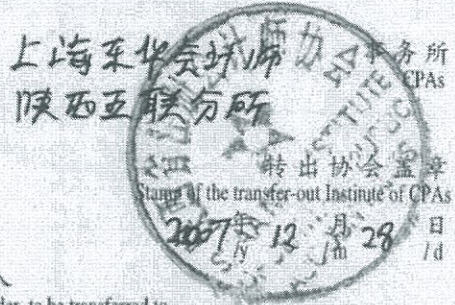 上海东华会计师 事务所
CPAs
陕西五联分所
转出协会盖章
Stamp of the transfer-out Institute of CPAs
2007年 12月 28日
/y /m /d
to be transferred to